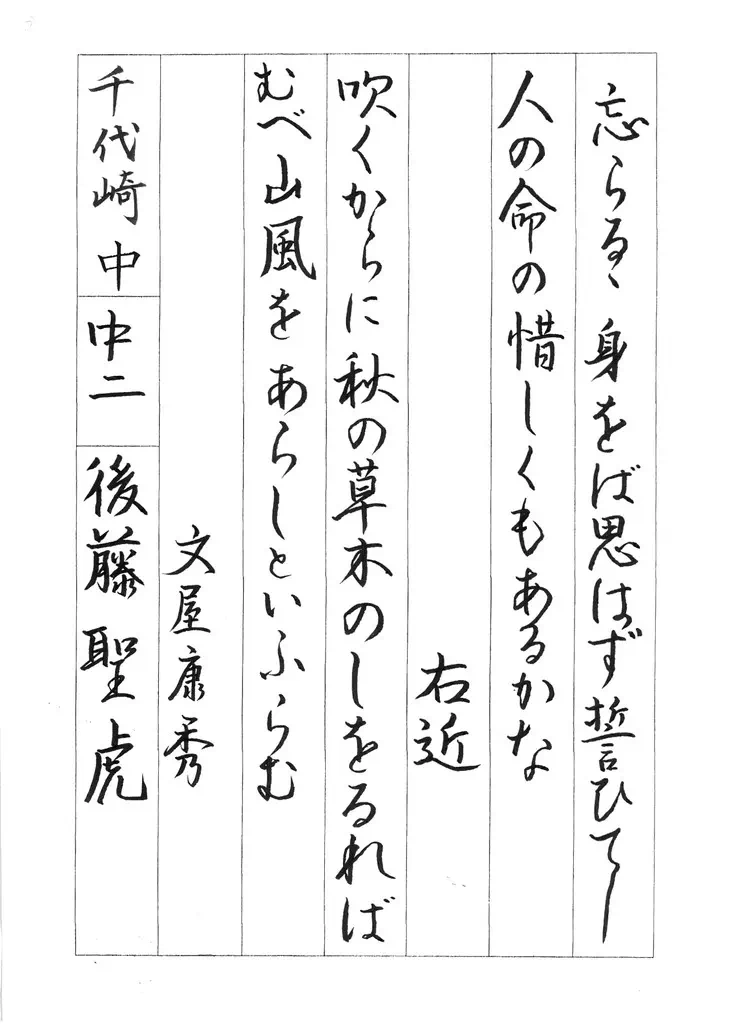 忘らるゝ身をば思はず誓ひてし
人の命の惜しくもあるかな
右近
吹くからに秋の草木のしをるれば
むべ山風をあらしといふらむ
文屋康秀
千代崎中
中二
後藤聖虎